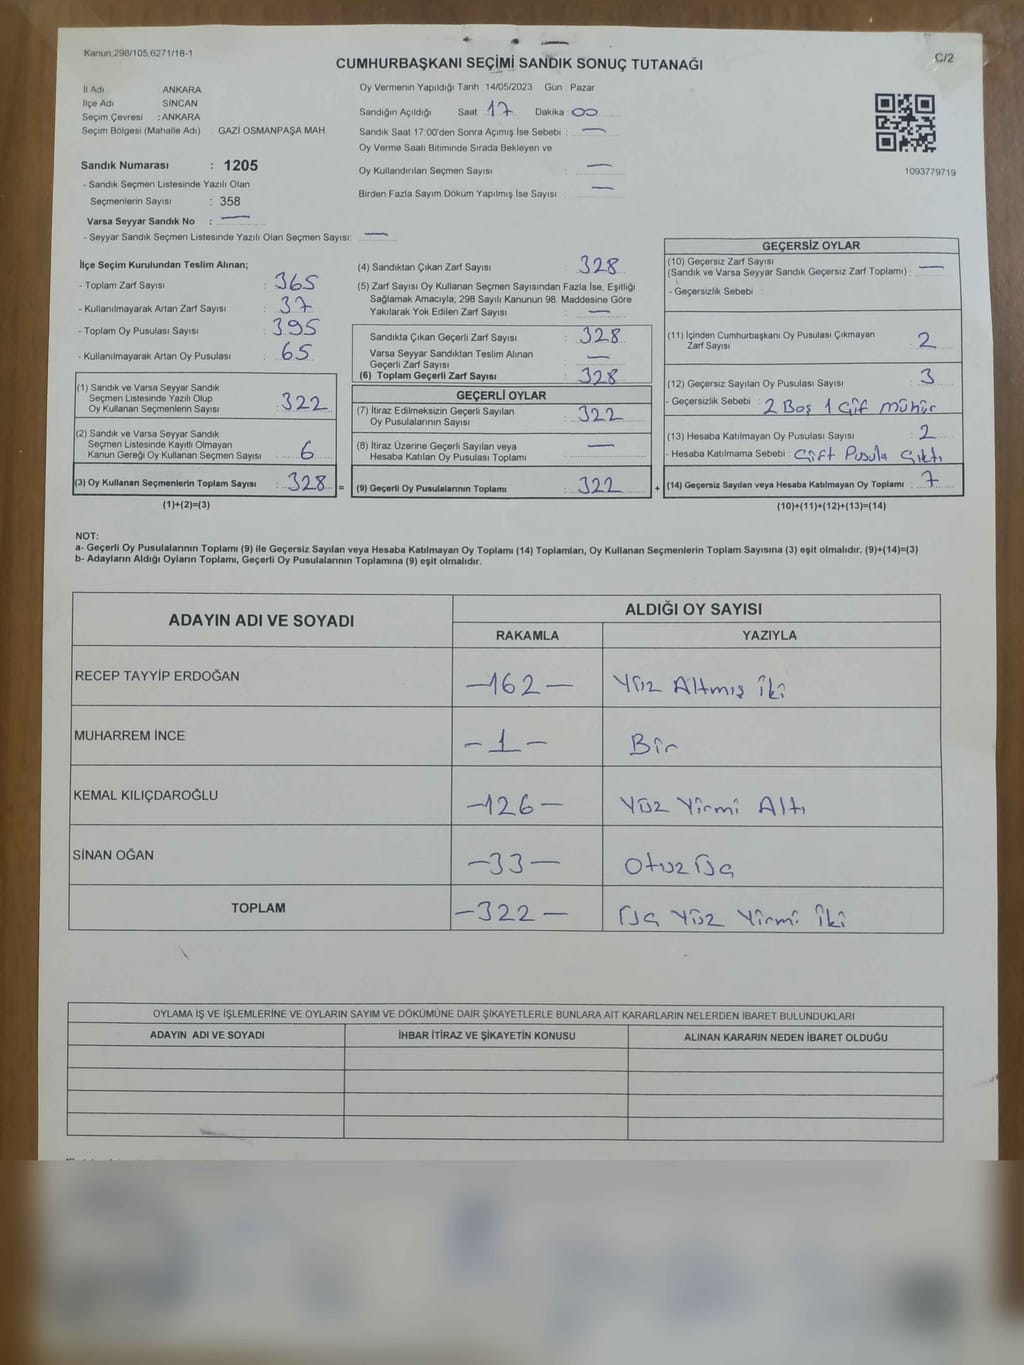 Kanun.298/105,6271/18-1
C/2
CUMHURBAŞKANI SEÇİMİ SANDIK SONUÇ TUTANAĞI
İl Adı ANKARA
İlçe Adı SİNCAN
Seçim Çevresi : ANKARA
Seçim Bölgesi (Mahalle Adı) : GAZİ OSMANPAŞA MAH
Sandık Numarası : 1205
- Sandık Seçmen Listesinde Yazılı Olan
Seçmenlerin Sayısı : 358
Varsa Seyyar Sandık No : —
- Seyyar Sandık Seçmen Listesinde Yazılı Olan Seçmen Sayısı: —
Oy Vermenin Yapıldığı Tarih 14/05/2023 Gün : Pazar
Sandığın Açıldığı Saat 17 Dakika 00
Sandık Saat 17:00'den Sonra Açımış İse Sebebi : —
Oy Verme Saati Bitiminde Sırada Bekleyen ve
Oy Kullandırılan Seçmen Sayısı : —
Birden Fazla Sayım Döküm Yapılmış İse Sayısı : —
1093779719
İlçe Seçim Kurulundan Teslim Alınan;
- Toplam Zarf Sayısı : 365
- Kullanılmayarak Artan Zarf Sayısı : 37
- Toplam Oy Pusulası Sayısı : 395
- Kullanılmayarak Artan Oy Pusulası : 65
(1) Sandık ve Varsa Seyyar Sandık
Seçmen Listesinde Yazılı Olup
Oy Kullanan Seçmenlerin Sayısı : 322
(2) Sandık ve Varsa Seyyar Sandık
Seçmen Listesinde Kayıtlı Olmayan
Kanun Gereği Oy Kullanan Seçmen Sayısı : 6
(3) Oy Kullanan Seçmenlerin Toplam Sayısı : 328 =
(1)+(2)=(3)
(4) Sandıktan Çıkan Zarf Sayısı : 328
(5) Zarf Sayısı Oy Kullanan Seçmen Sayısından Fazla İse, Eşitliği
Sağlamak Amacıyla; 298 Sayılı Kanunun 98. Maddesine Göre
Yakılarak Yok Edilen Zarf Sayısı : —
Sandıkta Çıkan Geçerli Zarf Sayısı : 328
Varsa Seyyar Sandıktan Teslim Alınan
Geçerli Zarf Sayısı : —
(6) Toplam Geçerli Zarf Sayısı : 328
GEÇERLİ OYLAR
(7) İtiraz Edilmeksizin Geçerli Sayılan
Oy Pusulalarının Sayısı : 322
(8) İtiraz Üzerine Geçerli Sayılan veya
Hesaba Katılan Oy Pusulası Toplamı : —
(9) Geçerli Oy Pusulalarının Toplamı : 322 +
GEÇERSİZ OYLAR
(10) Geçersiz Zarf Sayısı
(Sandık ve Varsa Seyyar Sandık Geçersiz Zarf Toplamı) : —
- Geçersizlik Sebebi :
(11) İçinden Cumhurbaşkanı Oy Pusulası Çıkmayan
Zarf Sayısı : 2
(12) Geçersiz Sayılan Oy Pusulası Sayısı : 3
- Geçersizlik Sebebi : 2 Boş 1 Çif mühür
(13) Hesaba Katılmayan Oy Pusulası Sayısı : 2
- Hesaba Katılmama Sebebi : Çift Pusula Çıktı
(14) Geçersiz Sayılan veya Hesaba Katılmayan Oy Toplamı : 7
(10)+(11)+(12)+(13)=(14)
NOT:
a- Geçerli Oy Pusulalarının Toplamı (9) ile Geçersiz Sayılan veya Hesaba Katılmayan Oy Toplamı (14) Toplamları, Oy Kullanan Seçmenlerin Toplam Sayısına (3) eşit olmalıdır. (9)+(14)=(3)
b- Adayların Aldığı Oyların Toplamı, Geçerli Oy Pusulalarının Toplamına (9) eşit olmalıdır.
ADAYIN ADI VE SOYADI
ALDIĞI OY SAYISI
RAKAMLA YAZIYLA
RECEP TAYYİP ERDOĞAN -162- Yüz Altmış İki
MUHARREM İNCE -1- Bir
KEMAL KILIÇDAROĞLU -126- Yüz Yirmi Altı
SİNAN OĞAN -33- Otuz Üç
TOPLAM -322- Üç Yüz Yirmi İki
OYLAMA İŞ VE İŞLEMLERİNE VE OYLARIN SAYIM VE DÖKÜMÜNE DAİR ŞİKAYETLERLE BUNLARA AİT KARARLARIN NELERDEN İBARET BULUNDUKLARI
ADAYIN ADI VE SOYADI İHBAR İTİRAZ VE ŞİKAYETİN KONUSU ALINAN KARARIN NEDEN İBARET OLDUĞU